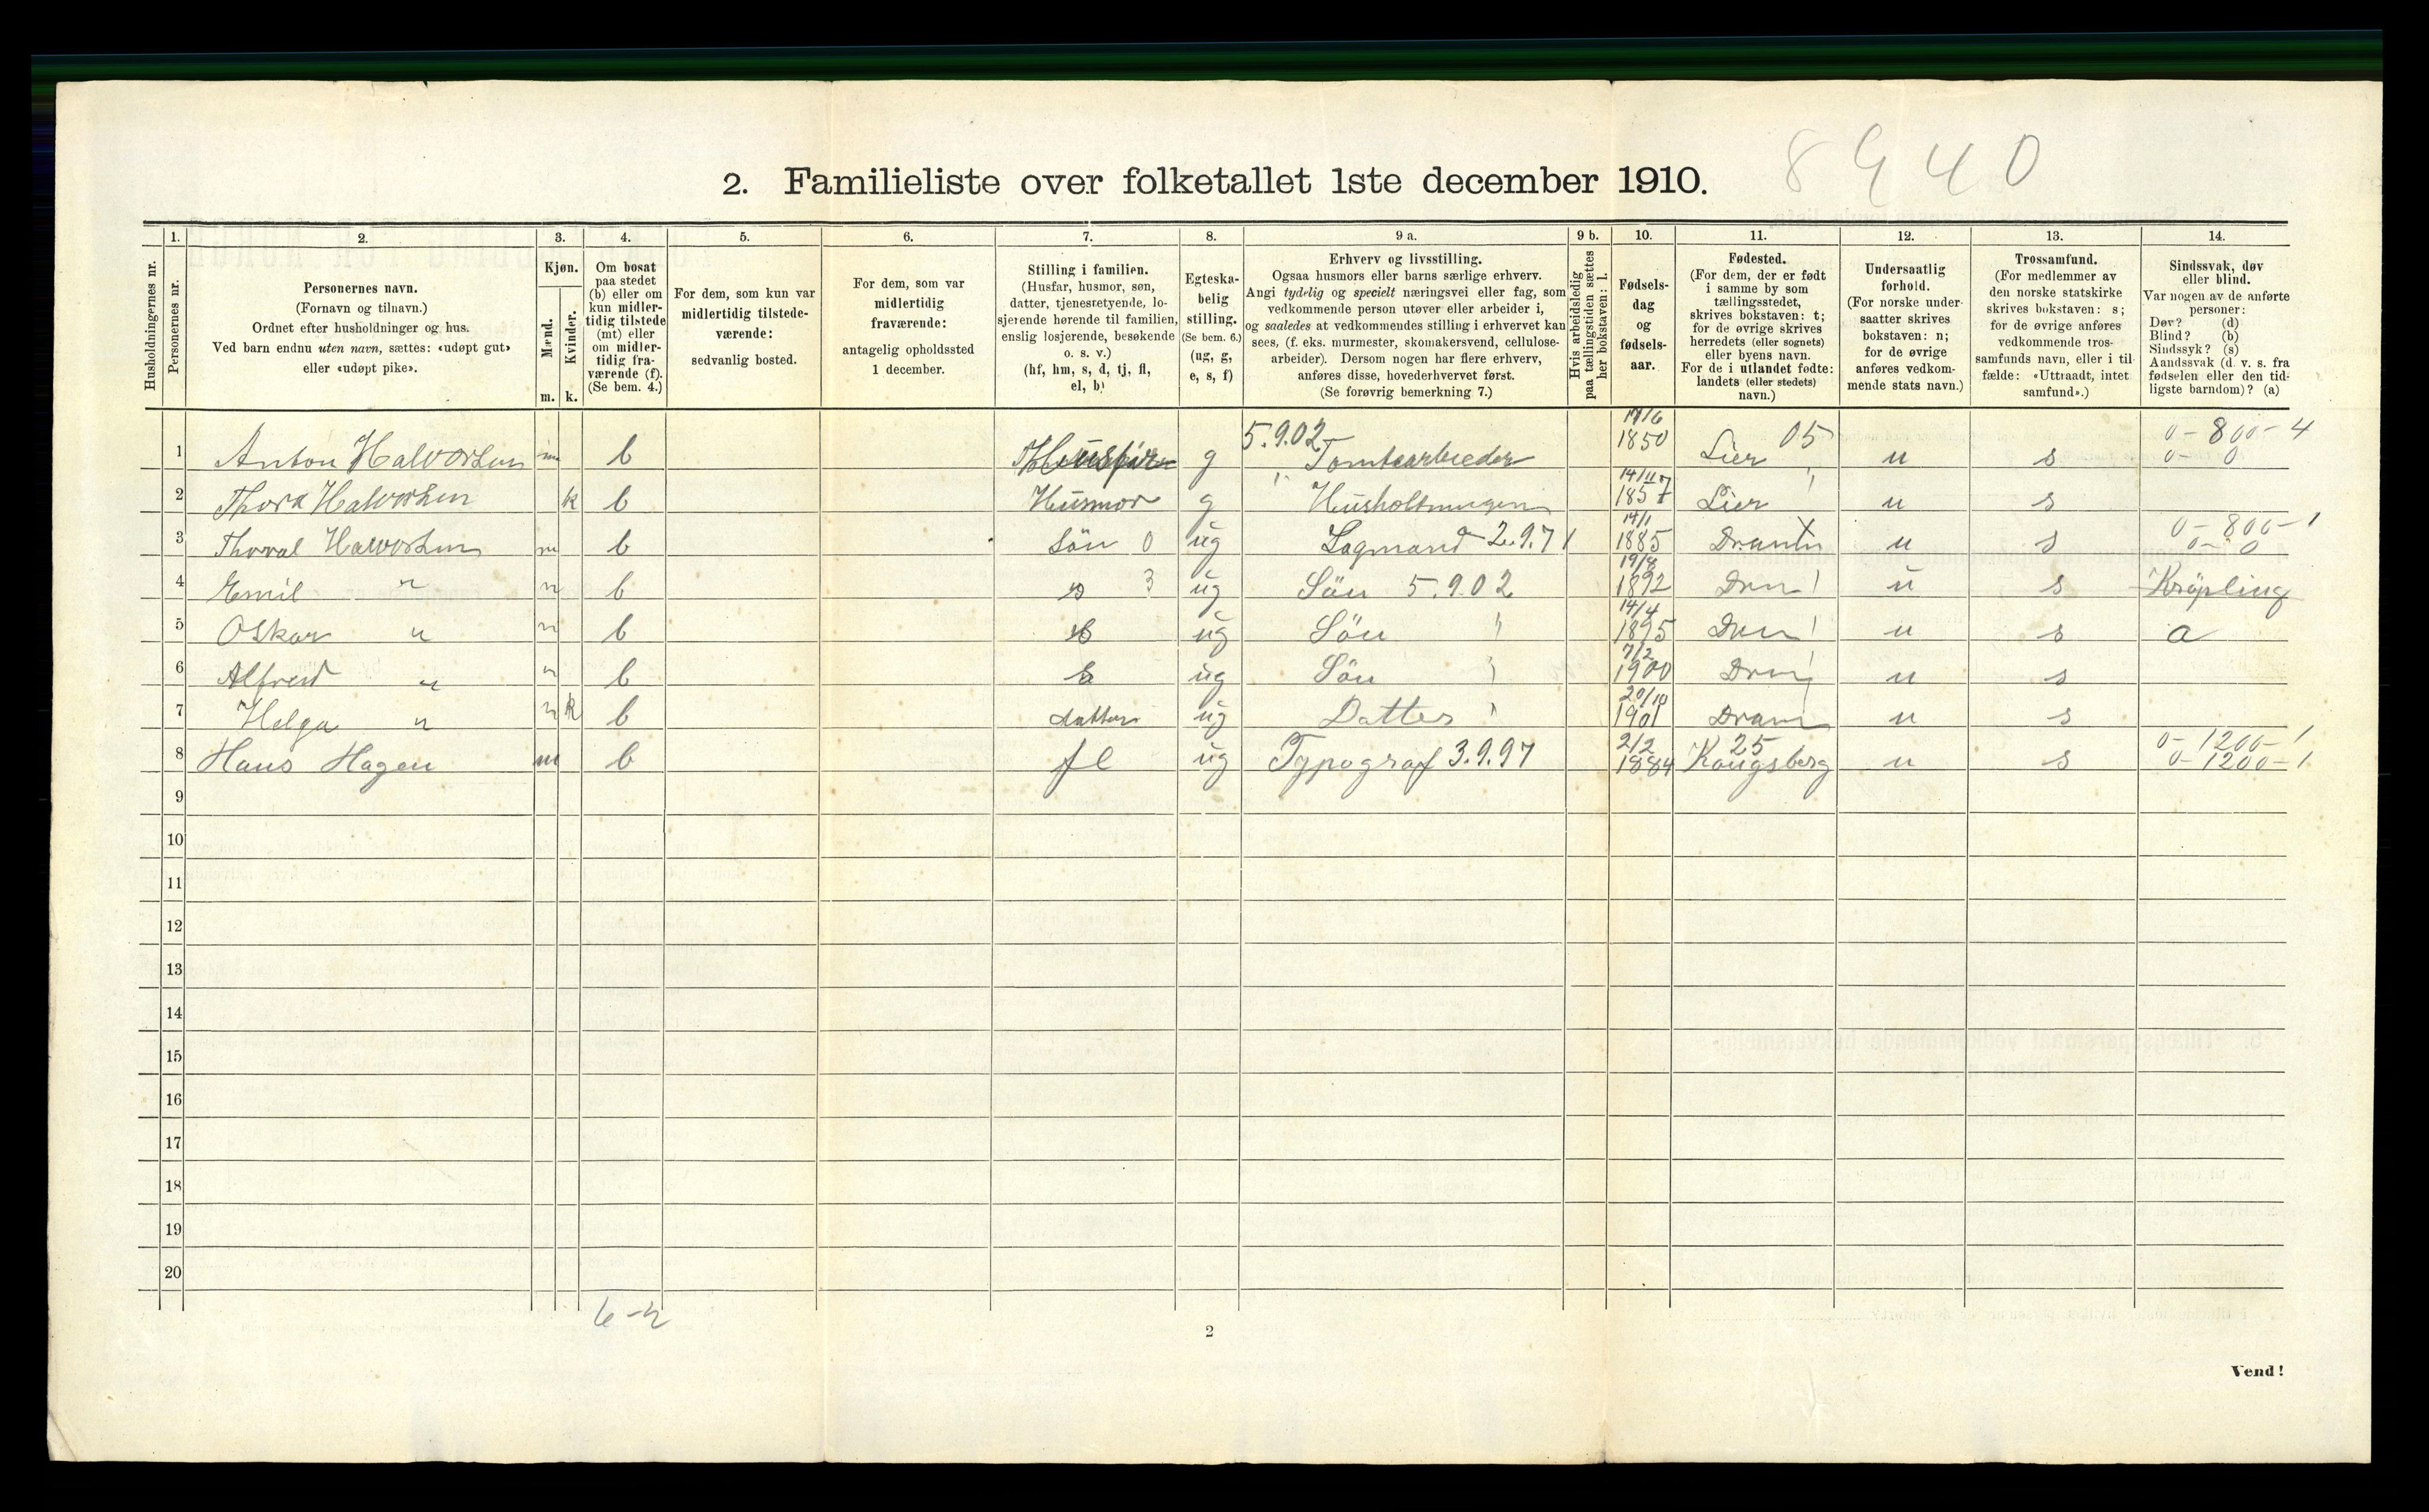 8940
2. Familieliste over folketallet 1ste december 1910.
Husholdningernes nr.
1. Personernes nr.
2. Personernes navn.
(Fornavn og tilnavn.)
Ordnet efter husholdninger og hus.
Ved barn endnu uten navn, sættes: «udøpt gut»
eller «udøpt pike».
3. Kjøn.
Mænd. m.
Kvinder. k.
4. Om bosat
paa stedet
(b) eller om
kun midler-
tidig tilstede
(mt) eller
om midler-
tidig fra-
værende (f).
(Se bem. 4.)
5. For dem, som kun var
midlertidig tilstede-
værende:
sedvanlig bosted.
6. For dem, som var
midlertidig
fraværende:
antagelig opholdssted
1 december.
7. Stilling i familien.
(Husfar, husmor, søn,
datter, tjenestyende, lo-
sjerende hørende til familien,
enslig losjerende, besøkende
o. s. v.)
(hf, hm, s, d, tj, fl,
el, b)
8. Egteska-
belig
stilling.
(Se bem. 6.)
(ug, g,
e, s, f)
9 a. Erhverv og livsstilling.
Ogsaa husmors eller barns særlige erhverv.
Angi tydelig og specielt næringsvei eller fag, som
vedkommende person utøver eller arbeider i,
og saaledes at vedkommendes stilling i erhvervet kan
sees, (f. eks. murmester, skomakersvend, cellulose-
arbeider). Dersom nogen har flere erhverv,
anføres disse, hovederhvervet først.
(Se forøvrig bemerkning 7.)
9 b. Hvis arbeidsledig
paa tællingstiden sættes
her bokstaven: l.
10. Fødsels-
dag
og
fødsels-
aar.
11. Fødested.
(For dem, der er født
i samme by som
tællingsstedet,
skrives bokstaven: t;
for de øvrige skrives
herredets (eller sognets)
eller byens navn.
For de i utlandet fødte:
landets (eller stedets)
navn.)
12. Undersaatlig
forhold.
(For norske under-
saatter skrives
bokstaven: n;
for de øvrige
anføres vedkom-
mende stats navn.)
13. Trossamfund.
(For medlemmer av
den norske statskirke
skrives bokstaven: s;
for de øvrige anføres
vedkommende tros-
samfunds navn, eller i til-
fælde: «Uttraadt, intet
samfund».)
14. Sindssvak, døv
eller blind.
Var nogen av de anførte
personer:
Døv? (d)
Blind? (b)
Sindssyk? (s)
Aandssvak (d. v. s. fra
fødselen eller den tid-
ligste barndom)? (a)
1 Anton Halvorsen m b Husfar g 5.9.02 Tomtearbeider 1850 Lier 05 n s 0-800-4 0-0
2 Thora Halvorsen k b Husmor g Husholtningen 14/11 1857 Lier n s
3 Thorval Halvorsen m b Søn 0 ug Lagmand 2.9.71 14/1 1885 Dramn n s 0-800-1 0-0
4 Emil " m b s 3 ug Søn 5.9.02 19/8 1892 Drm n s Krøpling
5 Oskar " m b s ug Søn 14/4 1895 Drm n s a
6 Alfred " m b s ug Søn 7/2 1900 Drm n s
7 Helga " k b datter ug Datter 20/10 1901 Dram n s
8 Hans Hagen m b fl ug Typograf 3.9.97 2/2 1884 25 Kongsberg n s 0-1200-1 0-1200-1
9
10
11
12
13
14
15
16
17
18
19
20
6-2
2
Vend!